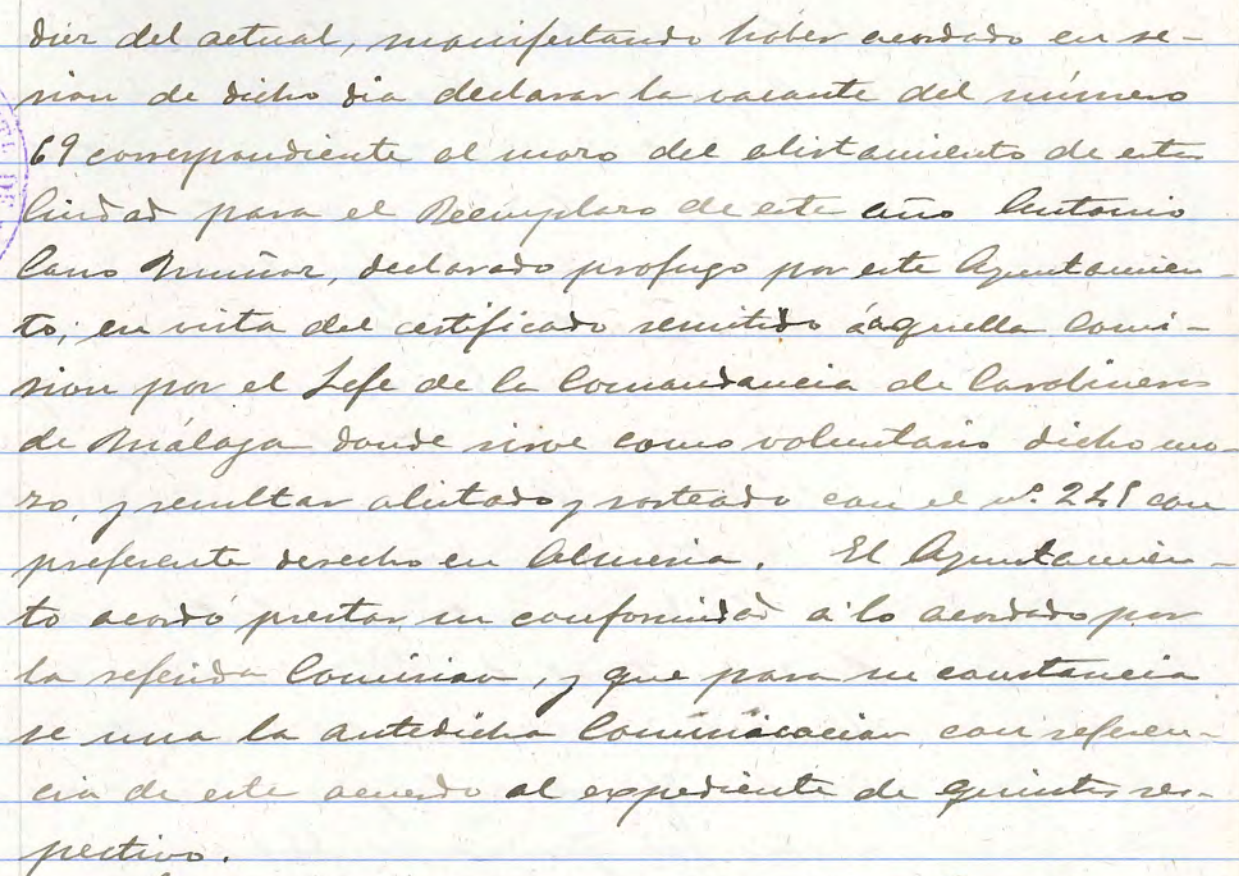 diez del actual, manifestando haber acordado en se-
sion de dicho dia declarar la vacante del número
69 correspondiente al mozo del alistamiento de esta
Ciudad para el Reemplazo de este año Antonio
Cano Muñoz, declarado profugo por este Ayuntamien-
to; en vista del certificado remitido á aquella Comi-
sion por el Jefe de la Comandancia de Carabineros
de Málaga donde sirve como voluntario dicho mo-
zo, y resultar alistado y sorteado con el nº. con
preferente derecho en Almeria. El Ayuntamien-
to acordó prestar su conformidad á lo acordado por
la referida Comision, y que para su constancia
se una la antedicha Comunicacion con referen-
cia de este acuerdo al expediente de quintas res-
pectivo.